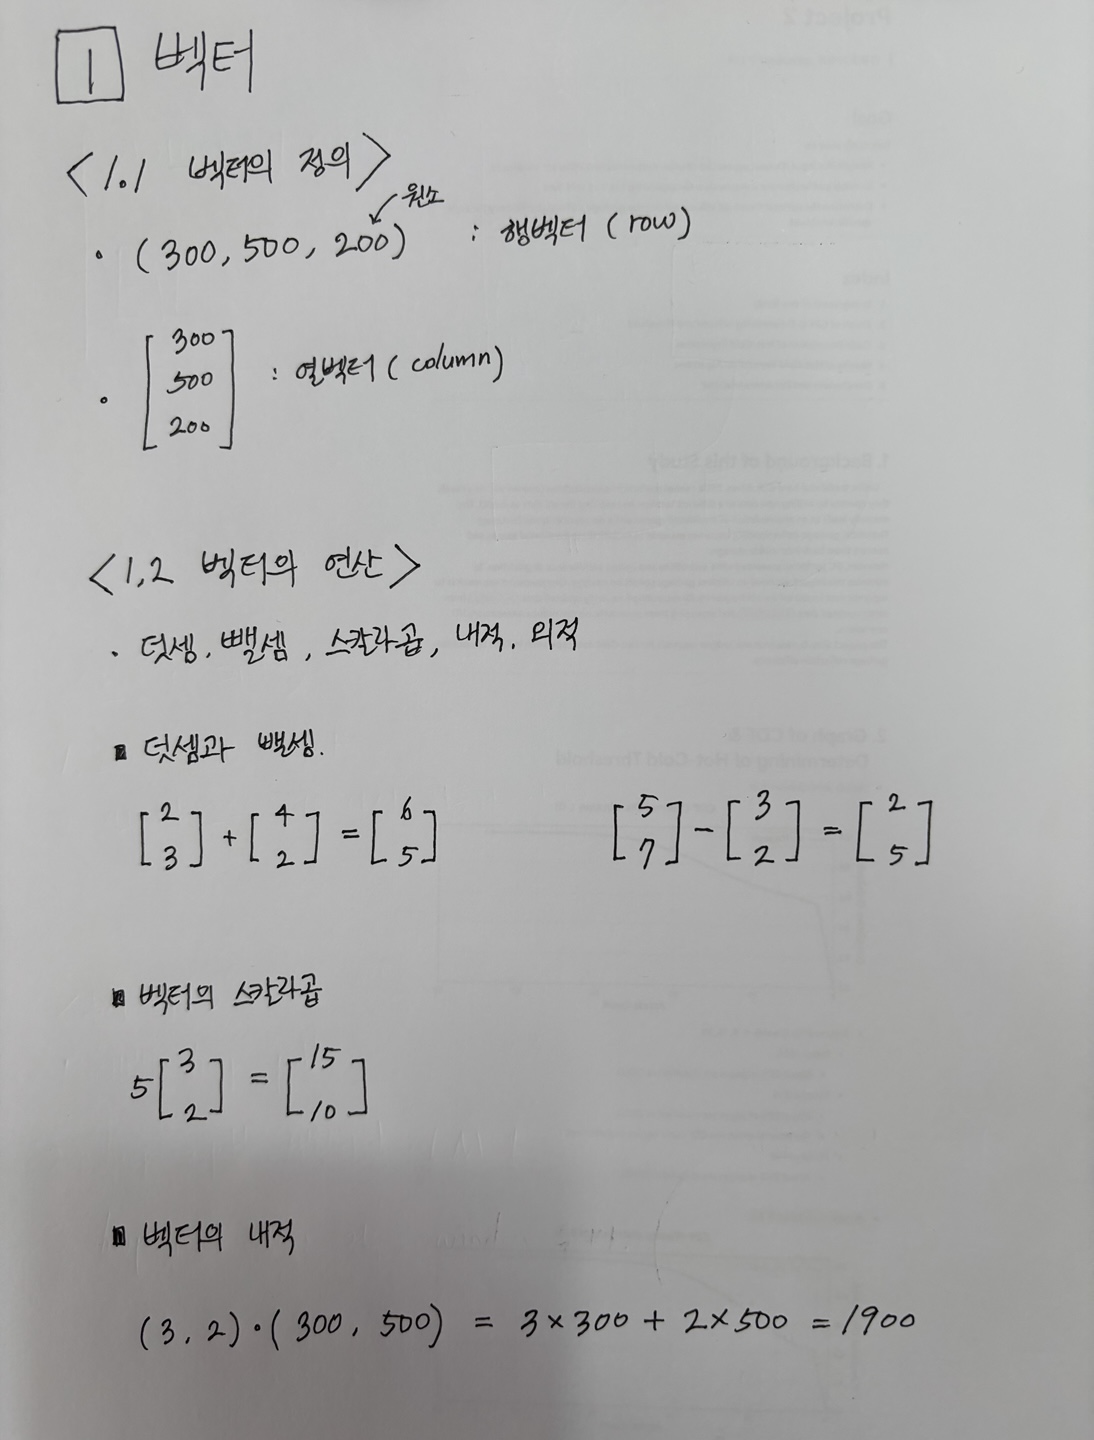 1 벡터
<1.1 벡터의 정의>
원소
• (300, 500, 200) : 행벡터 (row)
• [300 500 200] : 열벡터 (column)
<1.2 벡터의 연산>
• 덧셈, 뺄셈, 스칼라곱, 내적, 외적
■ 덧셈과 뺄셈.
[2 3] + [4 2] = [6 5] [5 7] - [3 2] = [2 5]
■ 벡터의 스칼라곱
5[3 2] = [15 10]
■ 벡터의 내적
(3, 2)·(300, 500) = 3×300 + 2×500 = 1900